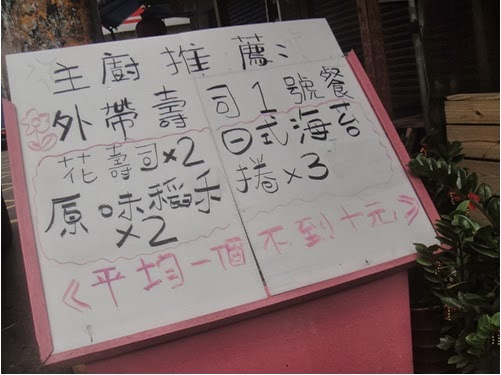 主廚推薦：
外帶壽司1號餐
花壽司×2 日式海苔
原味稻禾 捲×3
×2
《平均一個不到十元》